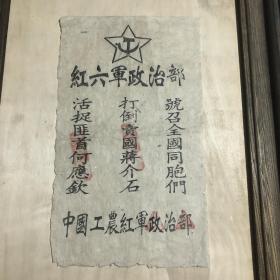 紅六軍政治部
號召全國同胞們
打倒賣國蔣介石
活捉匪首何應欽
中國工農紅軍政治部